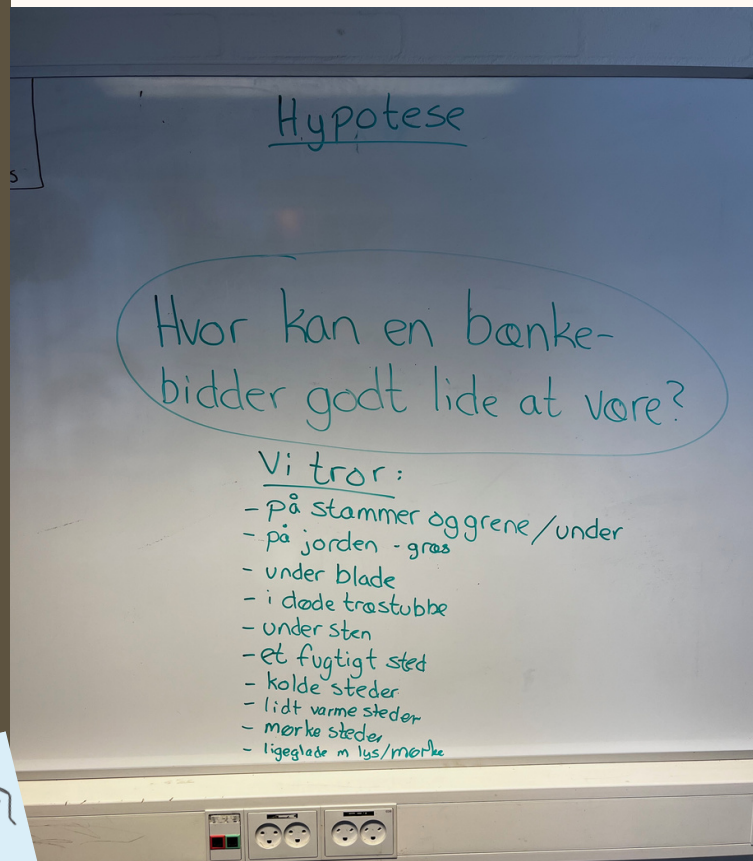 Hypotese
Hvor kan en bænke-
bidder godt lide at være?
Vi tror:
- på stammer og grene/under
- på jorden - græs
- under blade
- i døde træstubbe
- under sten
- et fugtigt sted
- kolde steder
- lidt varme steder
- mørke steder
- ligeglade m lys/mørke